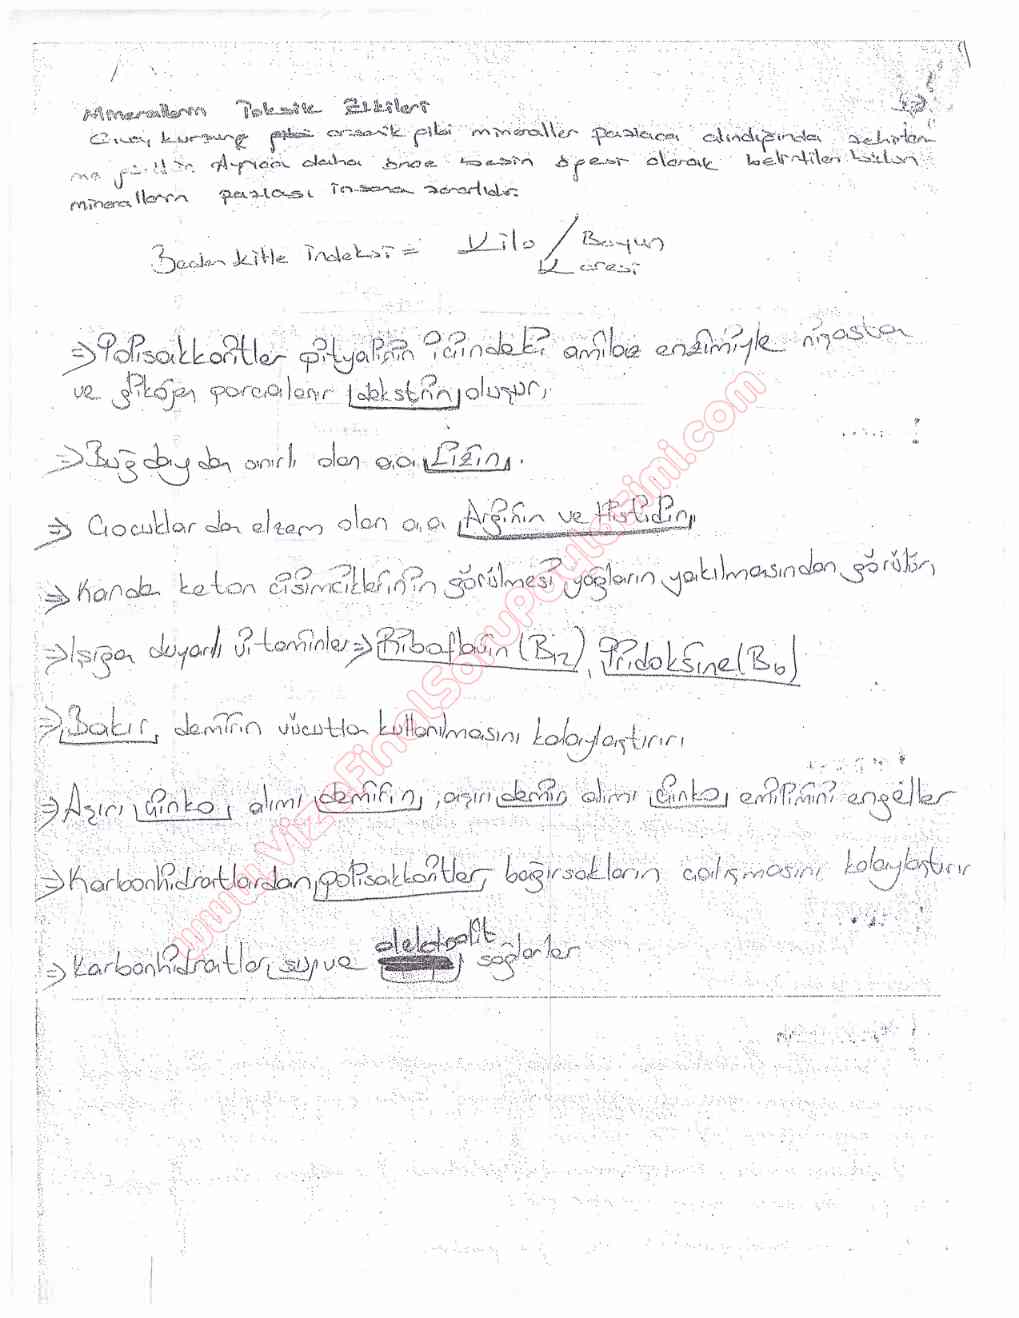 Minerallerin Toksik Etkileri
Civa, kurşung gibi arsenik gibi mineraller fazlaca alındığında zehirlen
me görülür. Ayrıca daha önce besin ögesi olarak belirtilen bütün
minerallerin fazlası insana zararlıdır.
Beden kitle indeksi = Kilo / Boyun
Karesi
⇒ Polisakkaritler pityalinin içindeki amilaz enzimiyle nişasta
ve glikojen parçalanır dekstrin oluşur.
⇒ Buğdayda sınırlı olan a.a. Lizin.
⇒ Çocuklarda elzem olan a.a. Arginin ve Histidin
⇒ Kanda keton cisimciklerinin görülmesi yağların yakılmasından görülür,
⇒ Işığa duyarlı vitaminler ⇒ Ribaflavin (B12), Pridoksine (B6)
⇒ Bakır, demirin vücutta kullanılmasını kolaylaştırır.
⇒ Aşırı çinko alımı demirin, aşırı demir alımı çinko emilimini engeller
⇒ Karbonhidratlardan polisakkaritler bağırsakların çalışmasını kolaylaştırır
⇒ Karbonhidratlar, su ve elektrolit sağlarlar
www.VizeFinalSoruPaylasimi.com